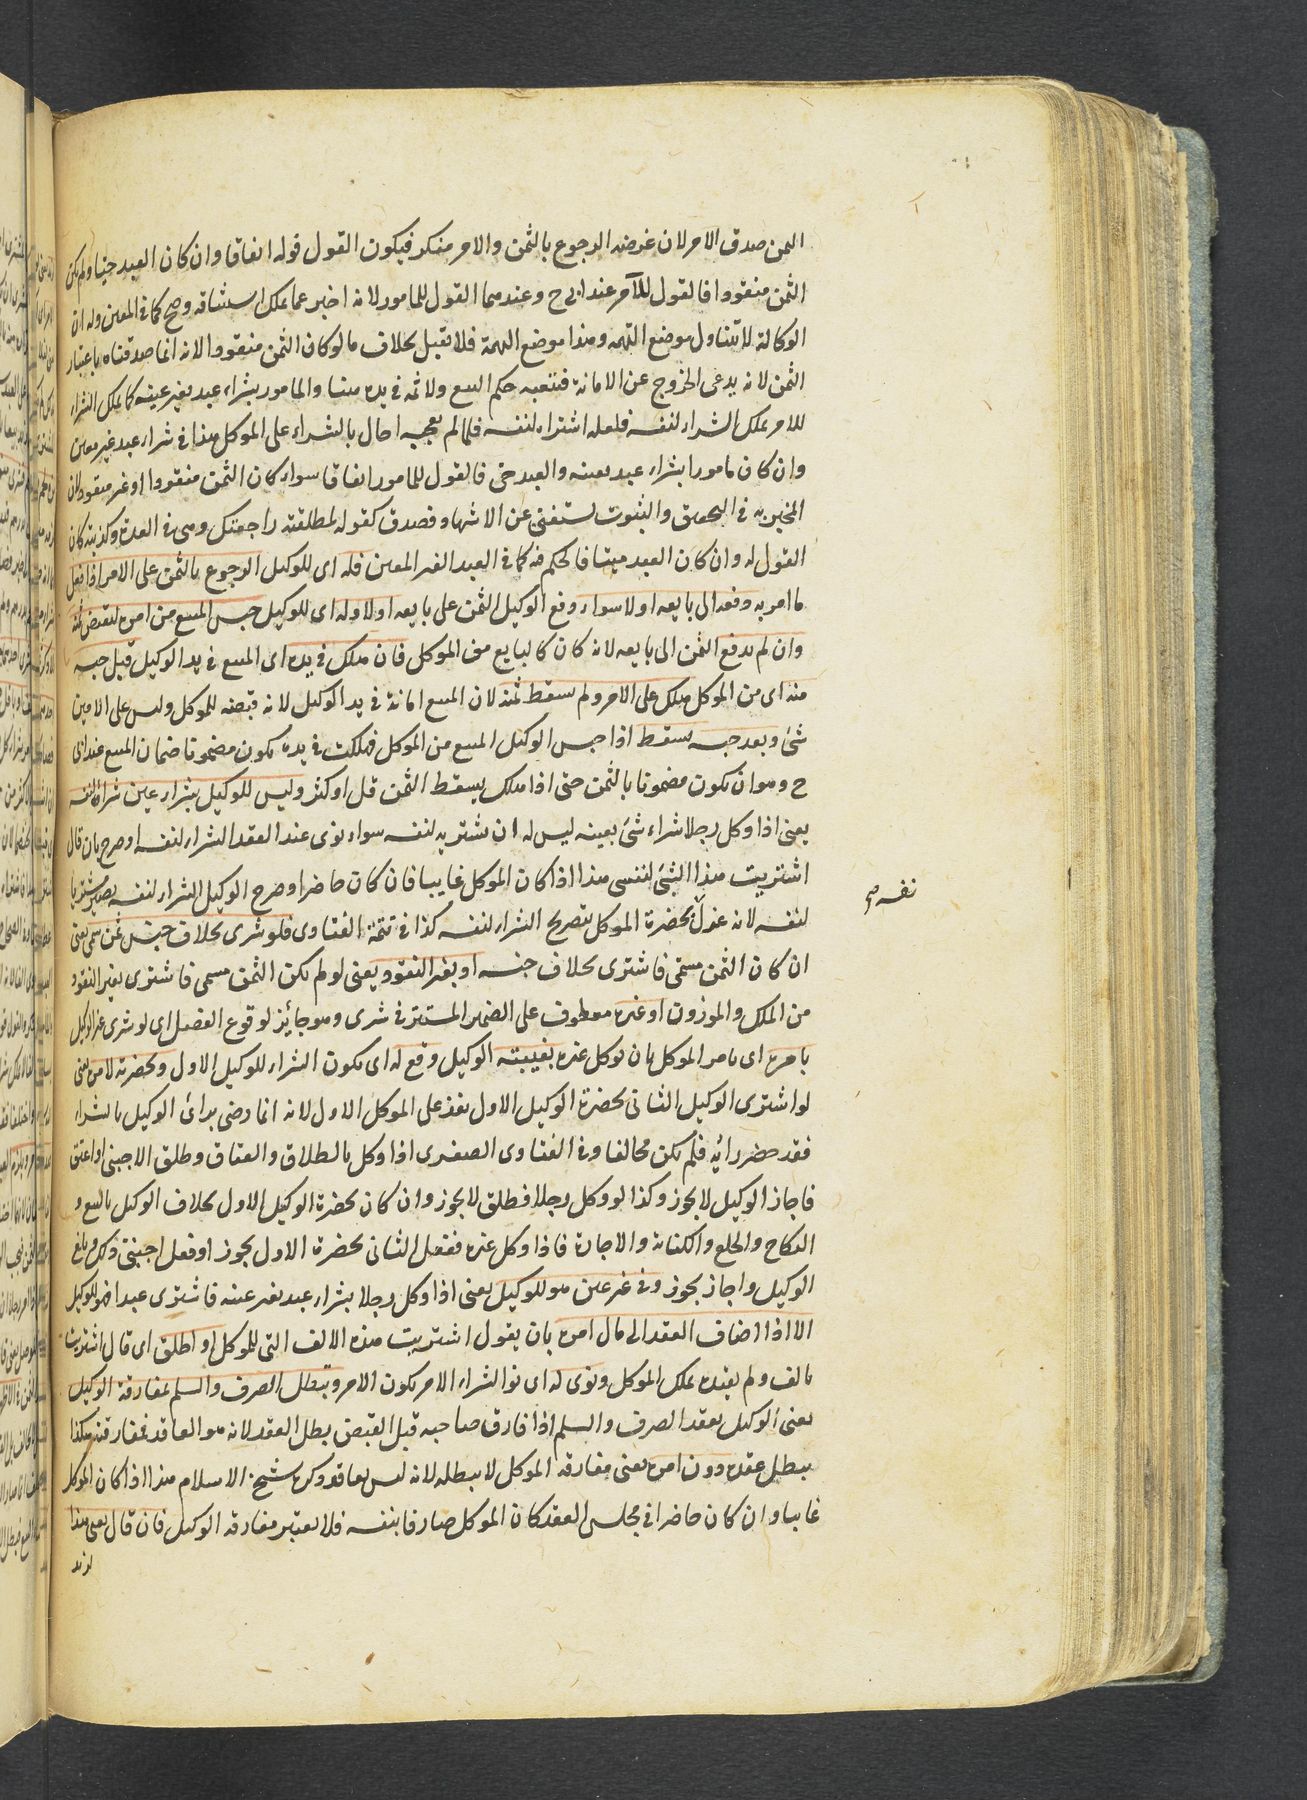 الثمن صدق الامر لان غرضه الرجوع بالثمن والامر منكر فيكون القول قوله اتفاقا وان كان العبد حيا ولم يكن
الثمن منقودا فالقول للآمر عند ابى ح وعندهما القول للمامور لانه اخبر عما يملك استئنافه وصح كما فى المعين وله ان
الوكالة لا تتناول موضع التهمه وهذا موضع التهمة فلا يقبل بخلاف ما لو كان الثمن منقودا لانه انما صدقناه باعتبار
الثمن لانه يدعى الخروج عن الامانة فتبعه حكم البيع ولا ثمه فى يده هنا والمامور بشراء عبد بغير عينه كما يملك الشراء
للامر يملك الشراء لنفسه فلعله اشتراه لنفسه فلما لم يعجبه احال بالشراء على الموكل هذا فى شراء عبد غير معين
وان كان مامورا بشراء عبد بعينه والعبد حى فالقول للمامور اتفاقا سواء كان الثمن منقودا او غير منقود لان
المخبر به فى التحقيق والثبوت يستغنى عن الاشهاد فصدق كقوله لمطلقته راجعتك وهى فى العدة وكذبته كان
القول له وان كان العبد ميتا فالحكم فيه كما فى العبد الغير المعين فله اى للوكيل الرجوع بالثمن على الامر اذا فعل
ما امر به دفعه الى بايعه او لا سواء دفع الوكيل الثمن على بايعه او لا وله اى للوكيل حبس المبيع من امره لقبض ثمنه
وان لم يدفع الثمن الى بايعه لانه كان كالبايع من الموكل فان هلك فى يده اى المبيع فى يد الوكيل قبل حبسه
منه اى من الموكل هلك على الامر ولم يسقط ثمنه لان المبيع امانة فى يد الوكيل لانه قبضه للموكل وليس على الامين
شئ وبعد حبسه سقط اذا حبس الوكيل المبيع من الموكل فهلكت فى يده يكون مضمونا ضمان المبيع عند ابى
ح وهو ان يكون مضمونا بالثمن حتى اذا هلك يسقط الثمن قل او كثر وليس للوكيل بشراء عين شراؤه لنفسه
يعنى اذا وكل رجلا شراء شئ بعينه ليس له ان يشتريه لنفسه سواء نوى عند العقد الشراء لنفسه او صرح بان قال
اشتريت هذا الشئ لنفسى هذا اذا كان الموكل غايبا فان كان حاضرا وصرح الوكيل الشراء لنفسه يصير مشتريا
لنفسه لانه عزل بحضرة الموكل بتصريح الشراء لنفسه كذا فى تتمة الفتاوى فلو شرى بخلاف جنس ثمن سمى يعنى
ان كان الثمن مسمى فاشترى بخلاف جنسه او بغير النقود يعنى لو لم يكن الثمن مسمى فاشترى بغير النقود
من المكيل والموزون او غيره معطوف على الضمير المستتر فى شرى وهو جائز لوقوع الفصل اى لو شرى غير الوكيل
بامره اى بامر الموكل بان يوكل غيره بغيبته الوكيل وقع له اى يكون الشراء للوكيل الاول وبحضرته لامره يعنى
لو اشترى الوكيل الثانى بحضرة الوكيل الاول نفذ على الموكل الاول لانه انما رضى برأى الوكيل بالشراء
فقد حضر رأيه فلم يكن مخالفا وفى الفتاوى الصغرى اذا وكل بالطلاق والعتاق وطلق الاجنبى او اعتق
فاجاز الوكيل لا يجوز وكذا لو وكل رجلا فطلق لا يجوز وان كان بحضرة الوكيل الاول بخلاف الوكيل بالبيع و
النكاح والخلع والكتابة والاجارة فاذا وكل غيره ففعل الثانى بحضرة الاول يجوز او فعل اجنبى ذلك وبلغ
الوكيل واجاز يجوز وفى غير عين هو للوكيل يعنى اذا وكل رجلا بشراء عبد بغير عينه فاشترى عبدا فهو للوكيل
الا اذا اضاف العقد الى مال امره بان يقول اشتريت هذه الالف التى للموكل او اطلق اى قال اشتريت
بالف ولم يقيده بملك الموكل ونوى له اى نوى الشراء الامر يكون الامر وتبطل الصرف والسلم بمفارقة الوكيل
يعنى الوكيل بعقد الصرف والسلم اذا فارق صاحبه قبل القبض بطل العقد لانه هو العاقد فمفارقته هكذا
يبطل عقده دون امره يعنى مفارقة الموكل لا يبطله لانه ليس بعاقد وذكره شيخ الاسلام هذا اذا كان الموكل
غايبا وان كان حاضرا فى مجلس العقد كان الموكل صارفا بنفسه فلا يعتبر مفارقه الوكيل فان قال بعنى هذا
لزيد
نفسه صح